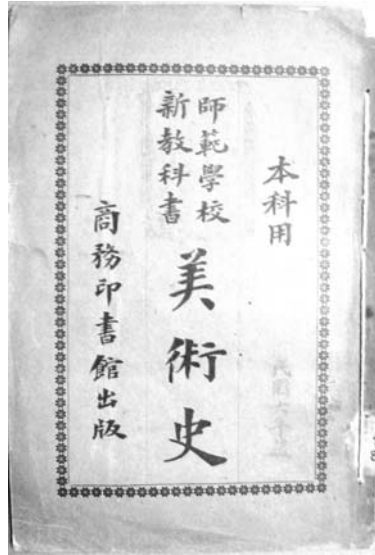 本科用
師範學校
新教科書
美術史
商務印書館出版